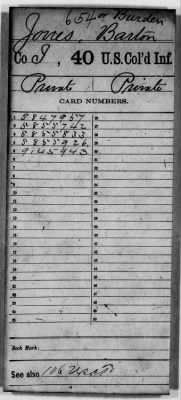 654 or Burden
Jones, Barton
Co. I, 40 U.S. Col'd Inf.
Private Private
CARD NUMBERS.
1 5847957
2 5855742
3 5855833
4 5855926
5 9145443
6
7
8
9
10
11
12
13
14
15
16
17
18
19
20
21
22
23
24
25
Book Mark:
See also 106 USCT